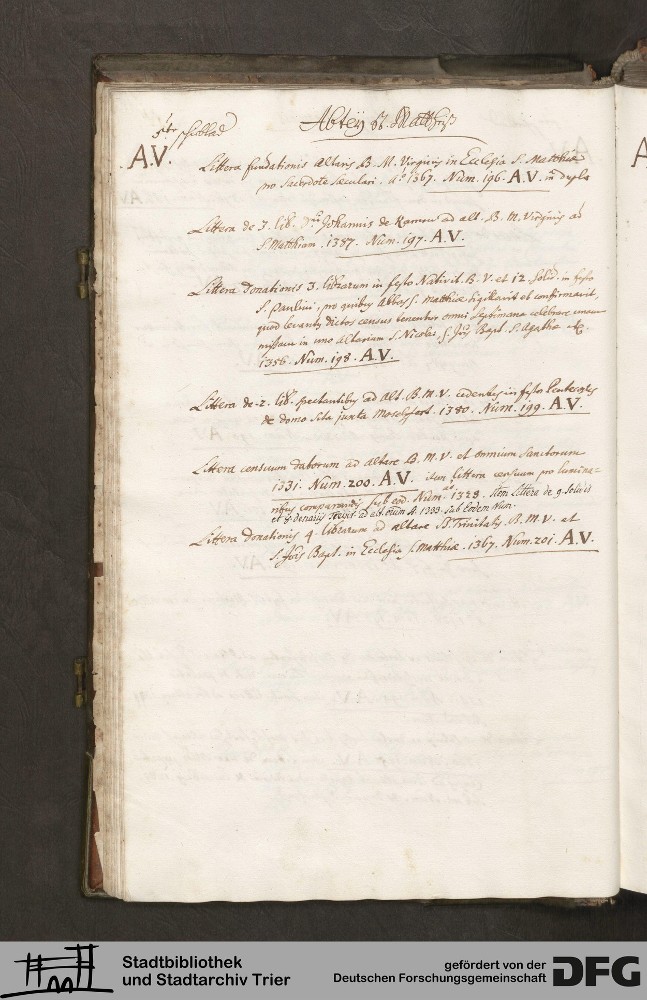 Abtey St. Matthiß
5te schublad
A.V.
Littera fundationis altaris B. M. Virginis in Ecclesia S. Matthiæ
pro sacerdote sæculari. aº 1367. Num. 196. A.V. in duplo
Littera de 3. lib. Johannis de ad alt. B. M. Virginis ad
S. Matthiam. 1387. Num. 197. A.V.
Littera Donationis 3. librarum in festo Nativit. B. V. et 12. solid. in festo
S. Paulini, pro quibus Abbas S. Matthiæ sigillavit et confirmavit,
quod levantes dictos census tenentur omni septimana celebrare unam
missam in uno altarium S. Nicolai, S. Jois Bapt. S. Agathæ etc.
1356. Num. 198. A.V.
Littera de 2. lib. spectantibus ad alt. B. M. V. cedentes in festo Pentecostes
de domo sita juxta Moselpfort. 1380. Num. 199. A.V.
Littera censuum datorum ad altare B. M. V. et omnium Sanctorum
1331. Num. 200. A.V. item littera censuum pro lumina-
ribus comparandis sub eod. Num. aº 1329. item Littera de 9. solid
et denariis ad 1333. sub Eodem Num.
Littera donationis 4. librarum ad altare SS. Trinitatis B. M. V. at
S. Jois Bapt. in Ecclesia S. Matthiæ. 1367. Num. 201. A.V.
A
Stadtbibliothek
und Stadtarchiv Trier
gefördert von der
Deutschen Forschungsgemeinschaft
DFG